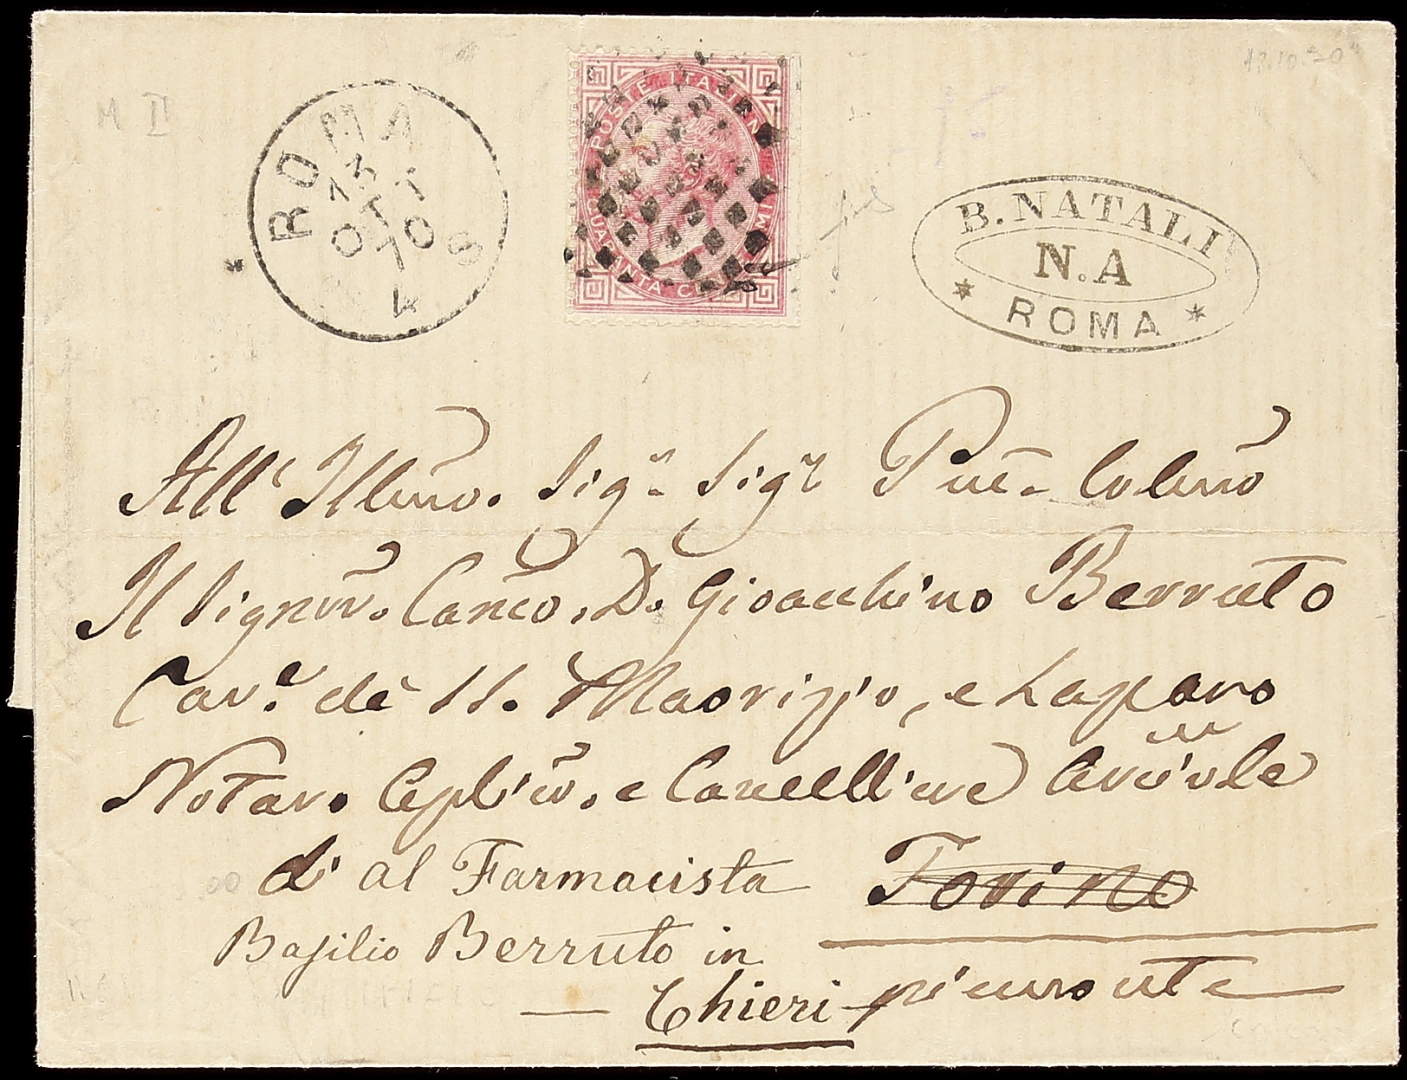 M II
13.10.70
ROMA
13
OTT
70
4 S
POSTE ITALIANE
QUARANTA CENTESIMI
B. NATALI
N.A
* ROMA *
All' Illmo. Sigr Sigr Pne Colmo
Il Signor. Canco. D. Gioacchino Berruto
Cavre de SS. Maorizzo, e Lazaro
Notaro Aplico. e Cancelliere Arcivle
di Torino
al Farmacista
Basilio Berruto in
Chieri piemonte